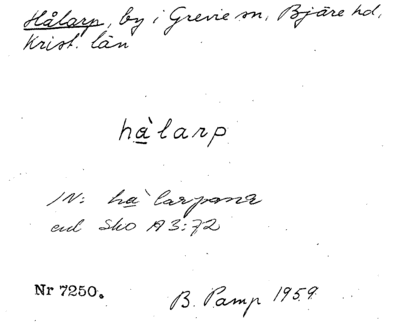 Hålarp, by i Grevie sn, Bjäre hd,
Krist. län
hàlarp
IN: hàlarpana
enl Sko A3:72
Nr 7250.
B. Pamp 1959